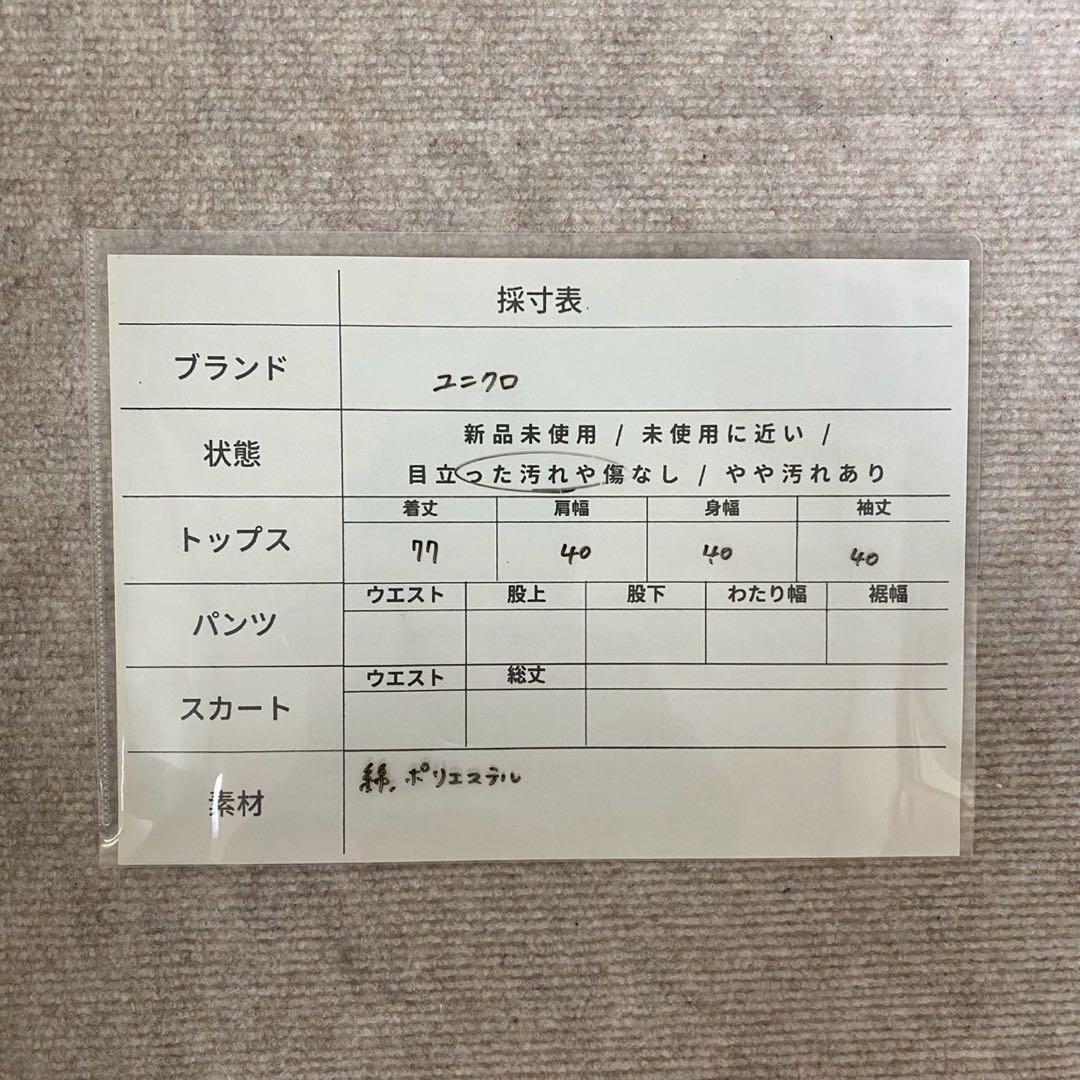 採寸表
ブランド
ユニクロ
状態
新品未使用 / 未使用に近い /
目立った汚れや傷なし / やや汚れあり
トップス
着丈 肩幅 身幅 袖丈
77 40 40 40
パンツ
ウエスト 股上 股下 わたり幅 裾幅
スカート
ウエスト 総丈
素材
綿、ポリエステル